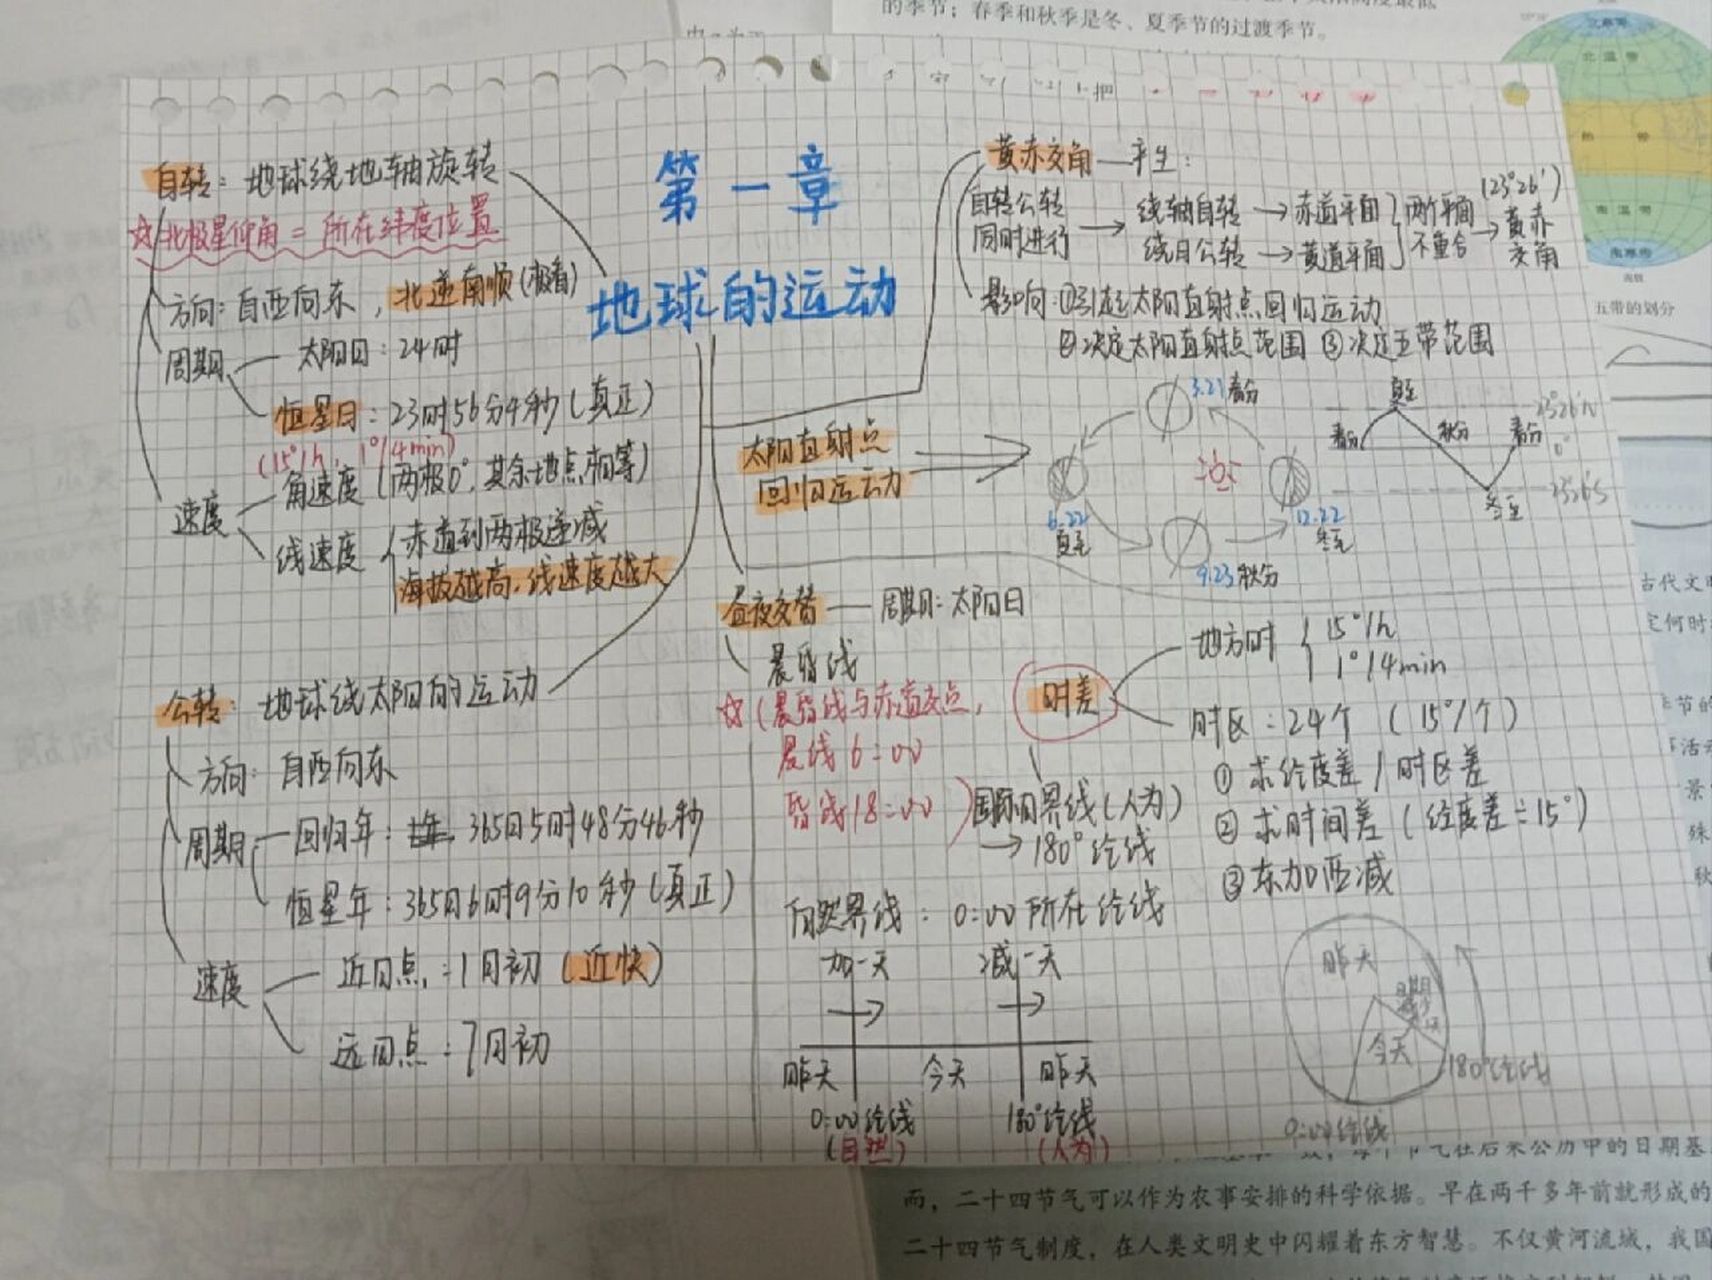 的季节；春季和秋季是冬、夏季节的过渡季节。
北温带
南温带
南寒带
五带的划分
第一章
地球的运动
自转：地球绕地轴旋转
☆北极星仰角＝所在纬度位置
方向：自西向东，北逆南顺（极看）
周期
太阳日：24时
恒星日：23时56分4秒（真正）
(15°/h, 1°/4min)
速度
角速度（两极0°，其余地点相等）
线速度
赤道到两极递减
海拔越高，线速度越大
公转：地球绕太阳的运动
方向：自西向东
周期
回归年：365日5时48分46秒
恒星年：365日6时9分10秒（真正）
速度
近日点：1月初（近快）
远日点：7月初
黄赤交角 — 产生：
自转公转
同时进行
→
绕轴自转→赤道平面
绕日公转→黄道平面
两个平面
不重合
→
(23°26′)
黄赤
交角
影响：①引起太阳直射点回归运动
②决定太阳直射点范围 ③决定五带范围
太阳直射点
回归运动
3.21春分
6.22
夏至
9.23秋分
12.22
冬至
春分
夏至
秋分
冬至
春分
23°26′N
0°
23°26′S
昼夜交替 — 周期：太阳日
晨昏线
☆（晨昏线与赤道交点，
晨线6:00
昏线18:00）
时差
地方时
15°/h
1°/4min
时区：24个（15°/个）
① 求经度差/时区差
② 求时间差（经度差÷15°）
③ 东加西减
国际日界线（人为）
→180°经线
自然界线：0:00所在经线
加一天
减一天
昨天
今天
昨天
0:00经线
（自然）
180°经线
（人为）
昨天
今天
180°经线
0:00经线
古代文
定何时
季节的
活
景
殊
秋
节气在后来公历中的日期基
而，二十四节气可以作为农事安排的科学依据。早在两千多年前就形成的
二十四节气制度，在人类文明史中闪耀着东方智慧。不仅黄河流域，我国